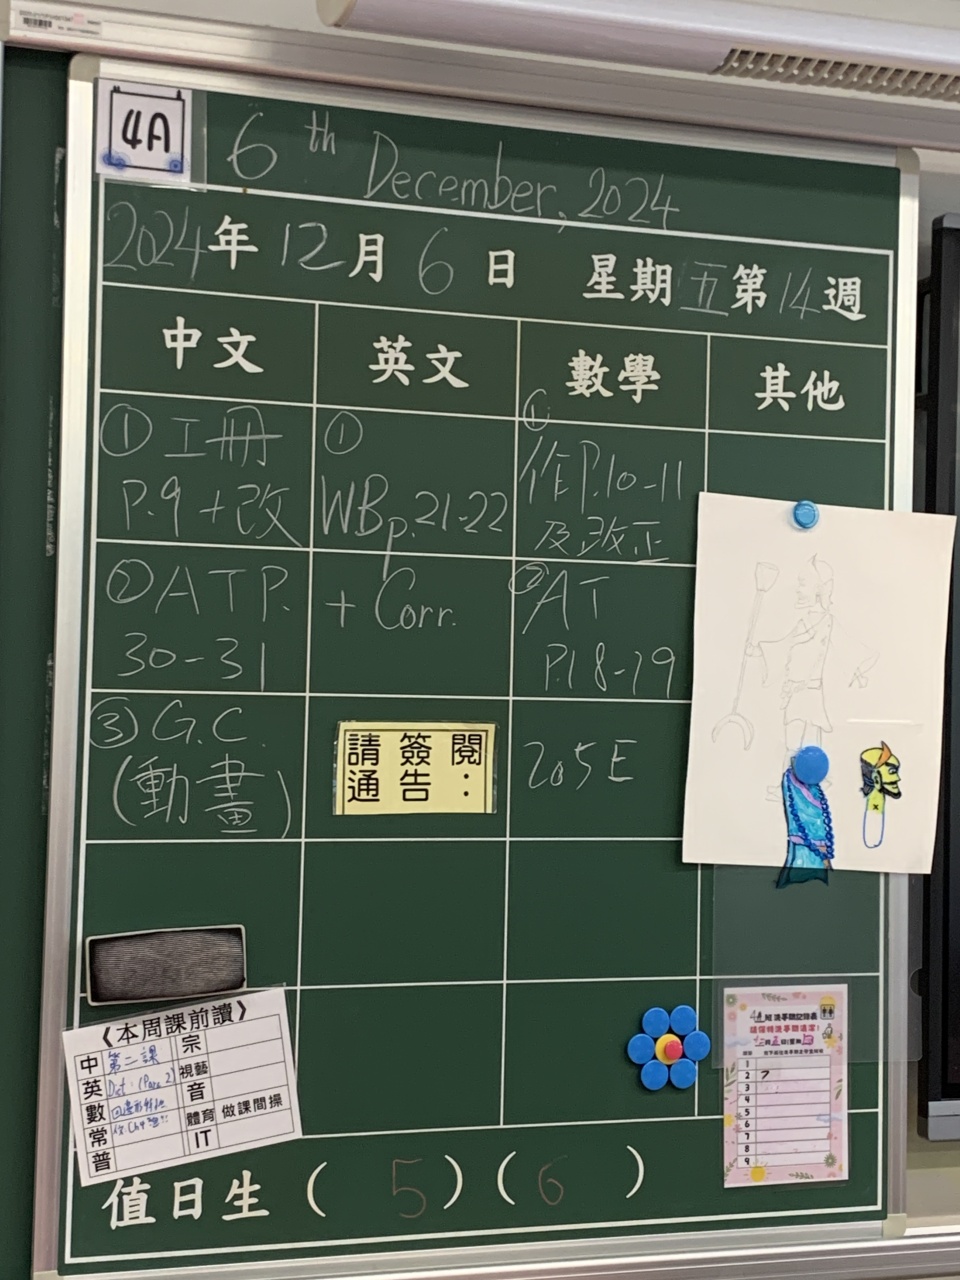 4A
6th December, 2024
2024年12月6日 星期五第14週
中文 英文 數學 其他
①工冊
P.9+改
②ATP.
30-31
③G.C.
(動畫)
①
WBp.21-22
+ Corr.
請簽閱
通告：
①
作P.10-11
及改正
②AT
P.18-19
205E
《本周課前讀》
中 第二課 宗
英 視藝
數 音
常 體育 做課間操
普 IT
值日生( 5 )( 6 )
1
2
3
4
5
6
7
8
9